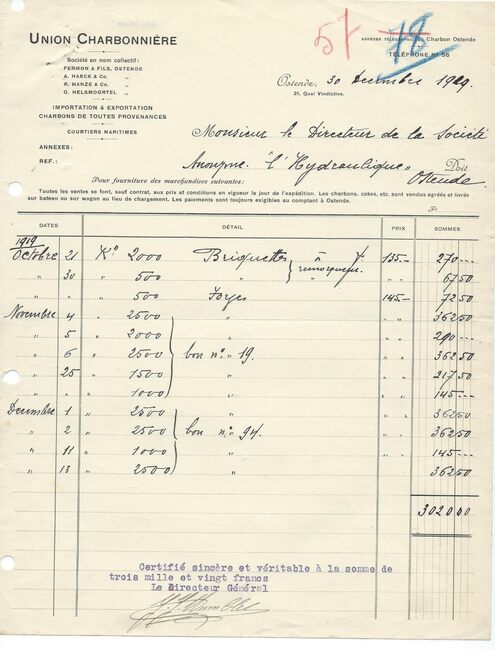 57 78
UNION CHARBONNIÈRE
ADRESSE TÉLÉGRAPHIQUE: Charbon Ostende
TÉLÉPHONE No 56
Société en nom collectif:
FERMON & FILS, OSTENDE
A. HAECK & Co. "
R. HANZE & Co. "
O. HELSMOORTEL "
IMPORTATION & EXPORTATION
CHARBONS DE TOUTES PROVENANCES
COURTIERS MARITIMES
Ostende, 30 Decembre 1929.
21, Quai Vindictive.
ANNEXES:
REF.:
Monsieur le Directeur de la Société
Anonyme "l'Hydraulique" Doit
Ostende.
Pour fourniture des marchandises suivantes:
Toutes les ventes se font, sauf contrat, aux prix et conditions en vigueur le jour de l'expédition. Les charbons, cokes, etc. sont vendus agréés et livrés
sur bateau ou sur wagon au lieu de chargement. Les paiements sont toujours exigibles au comptant à Ostende.
Fr
DATES DÉTAIL PRIX SOMMES
1919
Octobre 21 Ko 2000 Briquettes à 135- 270 --
" 30 " 500 " remorqueur. " " 67 50
" " " 500 Forges 145- 72 50
Novembre 4 " 2500 " " " 362 50
" 5 " 2000 " " " 290 --
" 6 " 2500 bon no " 19. " " 362 50
" 25 " 1500 " " " 217 50
" " " 1000 " " " 145 --
Decembre 1 " 2500 " " " 362 50
" 2 " 2500 bon no " 94. " " 362 50
" 11 " 1000 " " " 145 --
" 13 " 2500 " " " 362 50
3020 00
Certifié sincère et véritable à la somme de
trois mille et vingt francs
Le Directeur Général